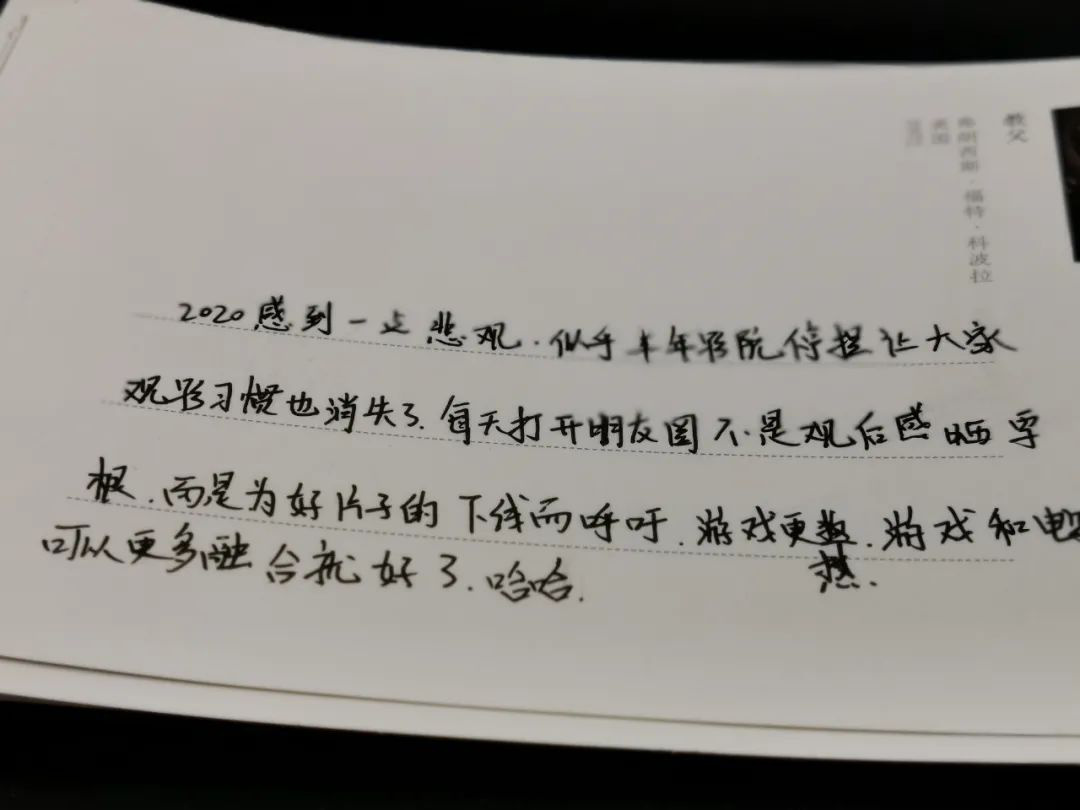 教父
弗朗西斯·福特·科波拉
美国
2020感到一点悲观.似乎半年影院停摆让大家
观影习惯也消失了.每天打开朋友圈不是观后感晒票
根.而是为好片子的下线而呼吁.游戏更热.游戏和电影
可以更多融合就好了.哈哈.